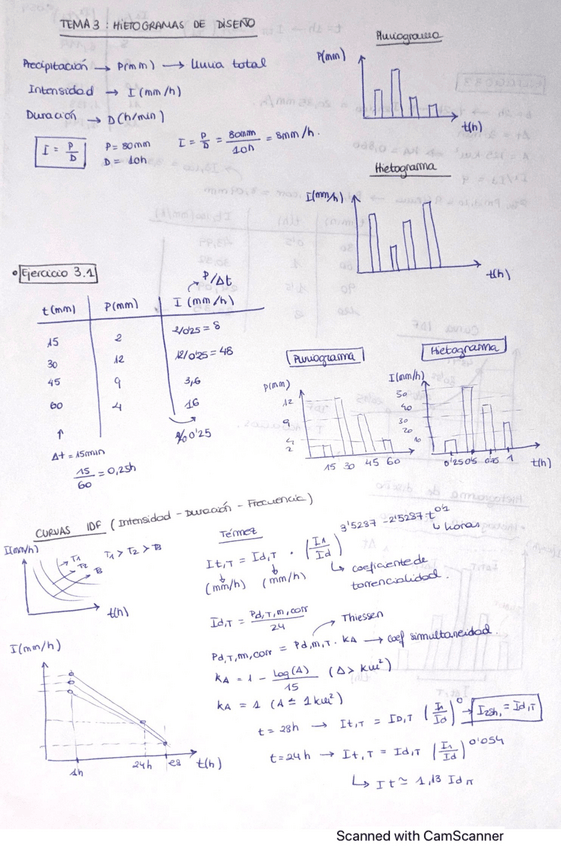 TEMA 3: HIETOGRAMAS DE DISEÑO
Precipitación → P(mm) → lluvia total
Intensidad → I (mm/h)
Duración → D (h/min)
I = P/D
P = 80mm
D = 10h
I = P/D = 80mm/10h = 8mm/h.
Pluviograma
P(mm)
t(h)
Hietograma
I(mm/h)
t(h)
• Ejercicio 3.1
P/Δt
t(mm) P(mm) I (mm/h)
15 2 2/0'25 = 8
30 12 12/0'25 = 48
45 9 3,6
60 4 16
4/0'25
Δt = 15min
15/60 = 0,25h
Pluviograma
P(mm)
12
9
4
2
15 30 45 60
Hietograma
I(mm/h)
50
40
30
20
t(h)
CURVAS IDF (Intensidad - Duración - Frecuencia)
I(mm/h)
T1 > T2 > T3
T1
T2
T3
t(h)
Témez
It,T = Id,T · (I1/Id)^3'5287 - 2'5287·t^0'1
↳ horas
(mm/h) (mm/h)
↳ coeficiente de
torrencialidad.
Id,T = Pd,T,m,corr/24
Thiessen
Pd,T,m,corr = Pd,m,T · KA → coef simultaneidad
KA = 1 - log(A)/15 (A > km²)
KA = 1 (A ≤ 1km²)
I(mm/h)
1h 24h 28 t(h)
t = 28h → It,T = ID,T (I1/Id)^0 → I28h, = Id,T
t = 24h → It,T = Id,T (I1/Id)^0'054
↳ It ≃ 1,13 Id,T
Scanned with CamScanner